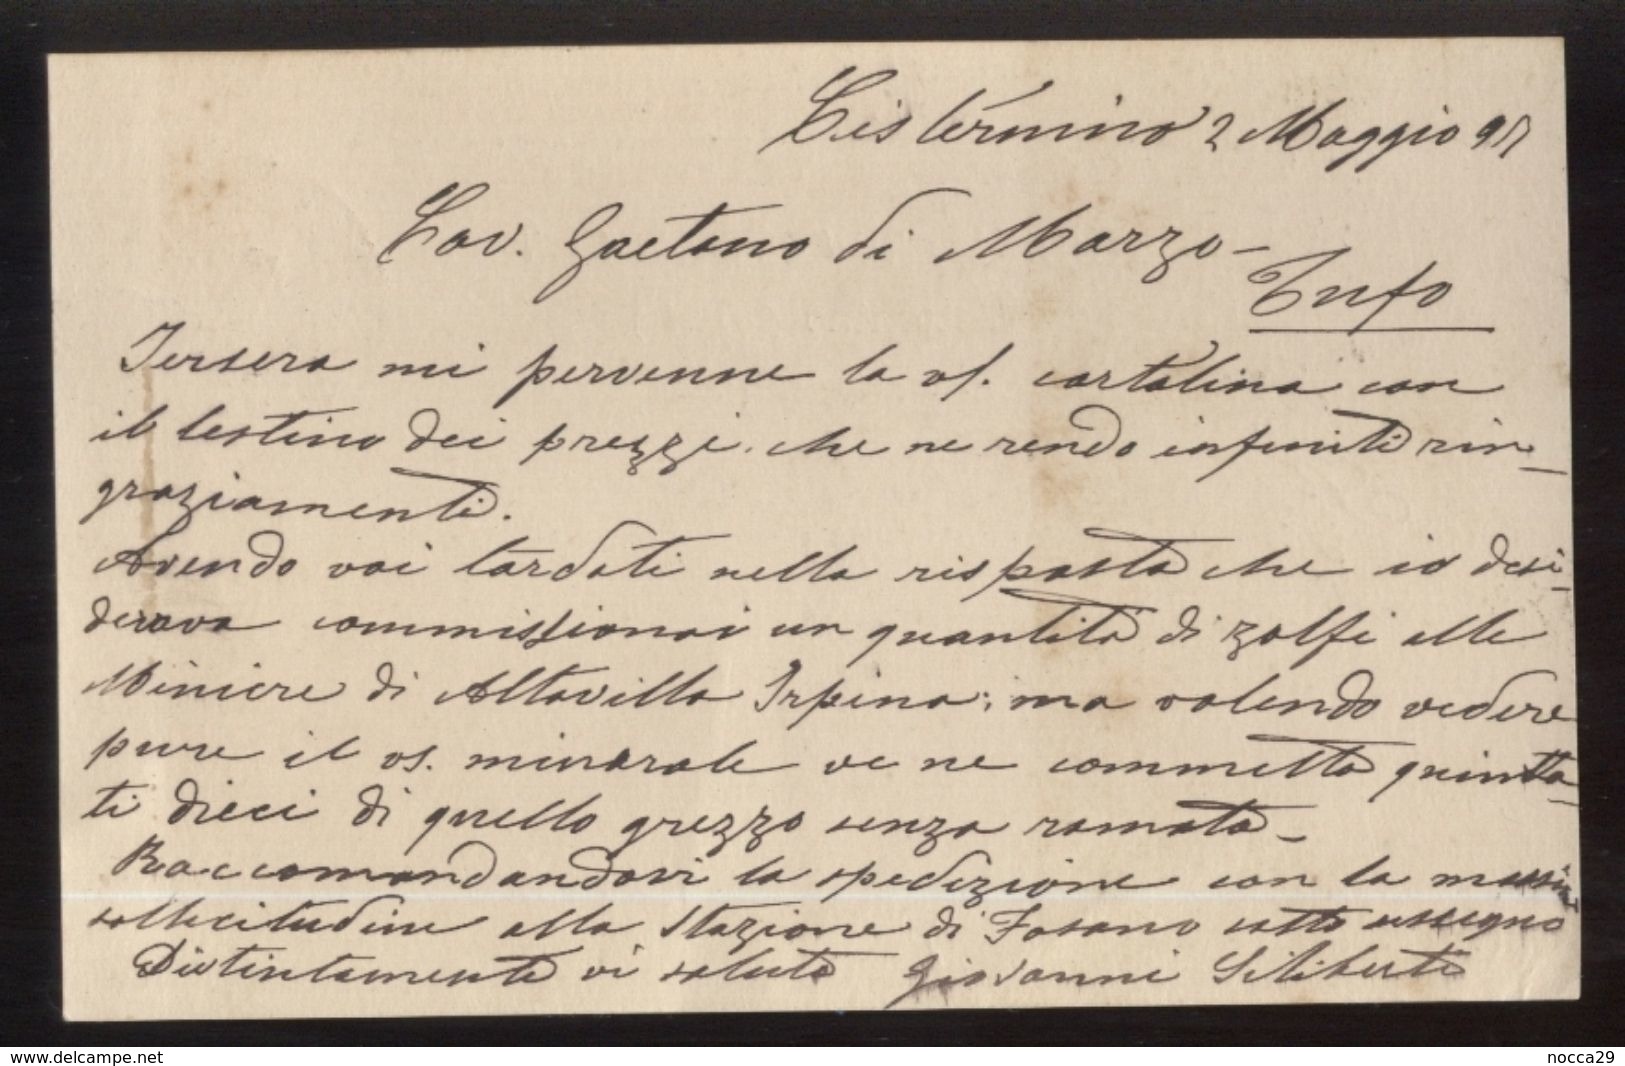 Cisternino 2 Maggio 97
Cav. Gaetano di Marzo -
Tufo
Iersera mi pervenne la vs. cartolina con
il lestino dei prezzi. che ne rendo infiniti rin-
graziamenti.
Avendo voi tardati nella risposta che io desi-
derava commissionai un quantità di zolfi alle
Miniere di Altavilla Irpina; ma volendo vedere
pure il vs. minerale ve ne commetto quinta-
li dieci di quello grezzo senza ramato -
Raccomandandovi la spedizione con la massima
sollecitudine alla Stazione di Fasano sotto assegno
Distintamente vi saluto Giovanni Siliberti
www.delcampe.net
nocca29